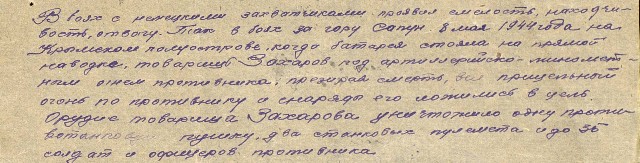 В боях с немецкими захватчиками проявил смелость, находчи-
вость, отвагу. Так в боях за гору Сапун 8 мая 1944 года на
Крымском полуострове, когда батарея стояла на прямой
наводке, товарищ Захаров под артиллерийско-миномет-
ным огнем противника, презирая смерть, вел прицельный
огонь по противнику и снаряды его ложились в цель.
Орудие товарища Захарова уничтожило одну проти-
вотанковую пушку, два станковых пулемета и до 35
солдат и офицеров противника